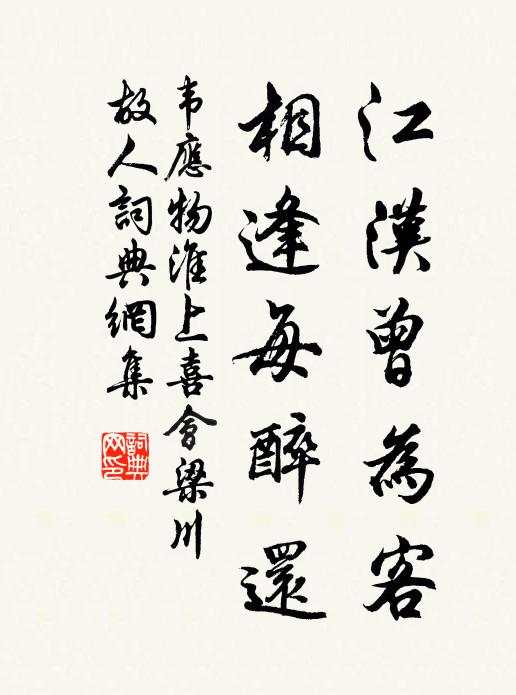 江漢曾為客
相逢每醉還
韦應物淮上喜會梁川
故人詞典網集
詞典
网印